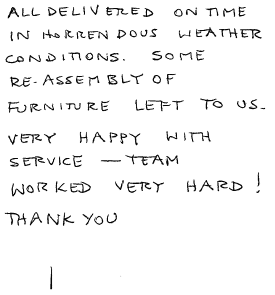 ALL DELIVERED ON TIME
IN HORRENDOUS WEATHER
CONDITIONS. SOME
RE-ASSEMBLY OF
FURNITURE LEFT TO US.
VERY HAPPY WITH
SERVICE — TEAM
WORKED VERY HARD!
THANK YOU